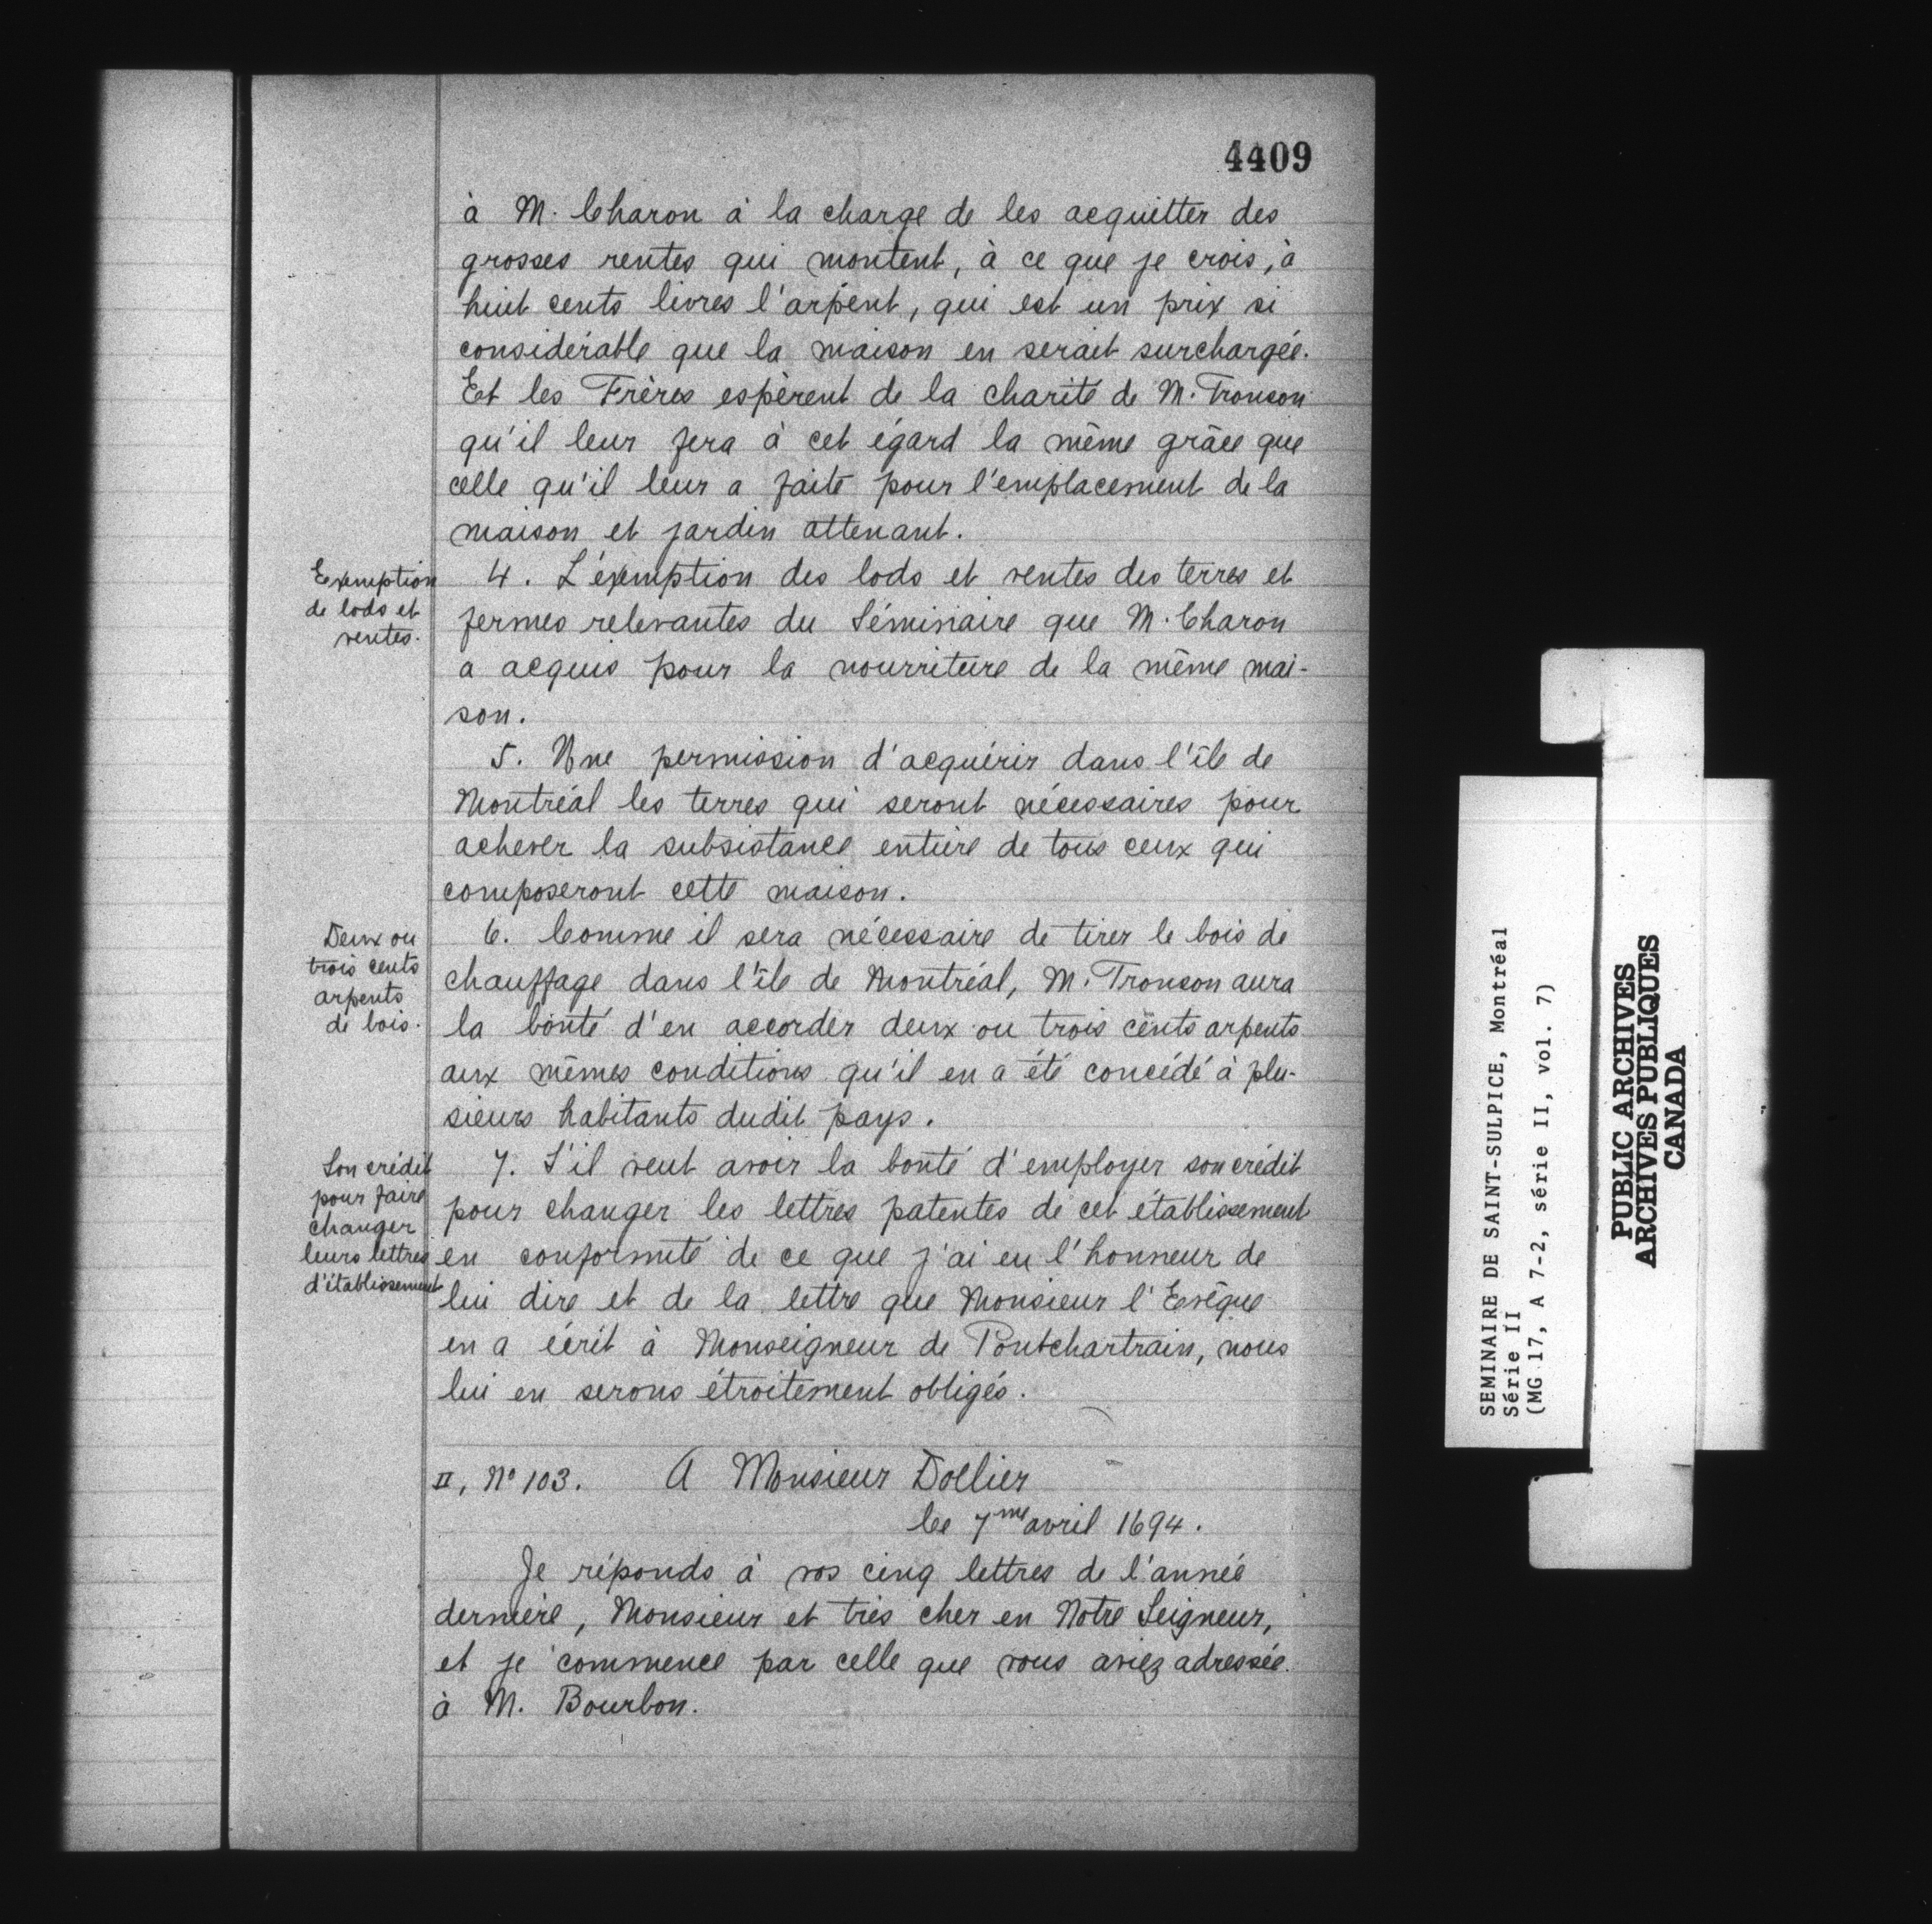 4409
à M. Charon à la charge de les acquitter des
grosses rentes qui montent, à ce que je crois, à
huit cents livres l'arpent, qui est un prix si
considérable que la maison en serait surchargée.
Et les Frères espèrent de la charité de M. Tronson
qu'il leur fera à cet égard la même grâce que
celle qu'il leur a faite pour l'emplacement de la
maison et jardin attenant.
Exemption
de lods et
ventes.
4. L'exemption des lods et ventes des terres et
fermes relevantes du Séminaire que M. Charon
a acquis pour la nourriture de la même mai-
son.
5. Une permission d'acquérir dans l'île de
Montréal les terres qui seront nécessaires pour
achever la subsistance entière de tous ceux qui
composeront cette maison.
Deux ou
trois cents
arpents
de bois.
6. Comme il sera nécessaire de tirer le bois de
chauffage dans l'île de Montréal, M. Tronson aura
la bonté d'en accorder deux ou trois cents arpents
aux mêmes conditions qu'il en a été concédé à plu-
sieurs habitants dudit pays.
Son crédit
pour faire
changer
leurs lettres
d'établissement
7. S'il veut avoir la bonté d'employer son crédit
pour changer les lettres patentes de cet établissement
en conformité de ce que j'ai eu l'honneur de
lui dire et de la lettre que Monsieur l'Evêque
en a écrit à Monseigneur de Pontchartrain, nous
lui en serons étroitement obligés.
II, No 103. A Monsieur Dollier
Ce 7me avril 1694.
Je réponds à vos cinq lettres de l'année
dernière, Monsieur et très cher en Notre Seigneur,
et je commence par celle que vous aviez adressée
à M. Bourbon.
SEMINAIRE DE SAINT-SULPICE, Montréal
Série II
(MG 17, A 7-2, série II, vol. 7)
PUBLIC ARCHIVES
ARCHIVES PUBLIQUES
CANADA